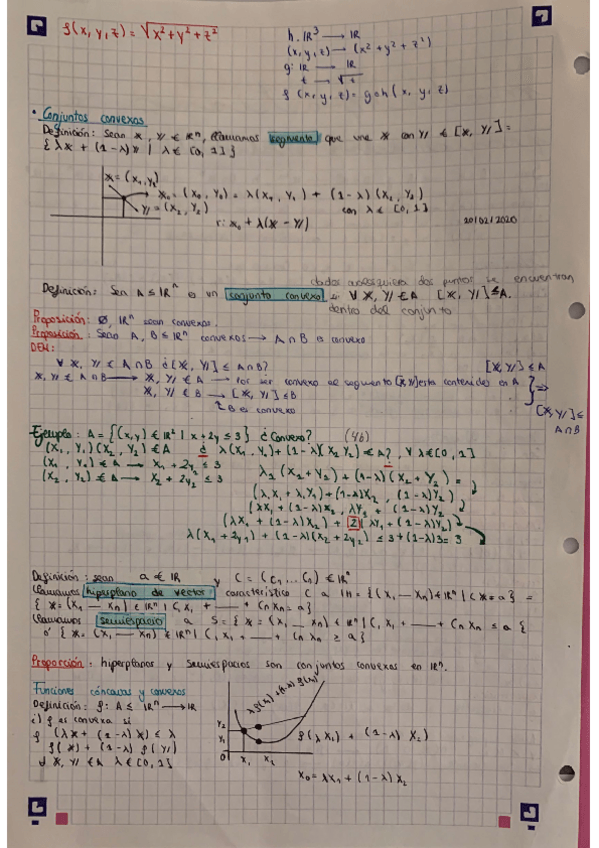 f(x, y, z) = √x² + y² + z²
h: ℝ³ → ℝ
(x, y, z) → (x² + y² + z²)
g: ℝ → ℝ
t → √t
f(x, y, z) = g∘h(x, y, z)
• Conjuntos convexos
Definición: Sean x, y ∈ ℝⁿ, llamamos segmento que une x con y ∈ [x, y] =
{λx + (1-λ)y | λ ∈ [0, 1]}
x = (x₁, y₁)
x₀ = (x₀, y₀) = λ(x₁, y₁) + (1-λ)(x₂, y₂)
y = (x₂, y₂)
con λ ∈ [0, 1]
r: x₀ + λ(x - y)
20/02/2020
dados cualesquiera dos puntos se encuentran
Definición: Sea A ⊆ ℝⁿ es un conjunto convexo si ∀ x, y ∈ A [x, y] ⊆ A.
dentro del conjunto
Proposición: Ø, ℝⁿ sean convexos.
Proposición: Sean A, B ⊆ ℝⁿ convexos → A ∩ B es convexo
DEM:
∀ x, y ∈ A ∩ B ¿[x, y] ⊆ A ∩ B?
[x, y] ⊆ A
x, y ∈ A ∩ B → x, y ∈ A → Por ser convexo el segmento [x, y] esta contenido en A
x, y ∈ B → [x, y] ⊆ B
B es convexo
[x, y] ⊆
A ∩ B
Ejemplo: A = {(x, y) ∈ ℝ² | x + 2y ≤ 3} ¿Convexo? (4b)
(x₁, y₁)(x₂, y₂) ∈ A ¿ λ(x₁, y₁) + (1-λ)(x₂ y₂) ∈ A?, ∀ λ ∈ [0, 1]
(x₁, y₁) ∈ A → x₁ + 2y₁ ≤ 3
(x₂, y₂) ∈ A → x₂ + 2y₂ ≤ 3
λ₁(x₁ + y₁) + (1-λ)(x₂ + y₂) =
(λx₁ + λy₁) + (1-λ)x₂, (1-λ)y₂)
(λx₁ + (1-λ)x₂, λy₁ + (1-λ)y₂)
(λx₁ + (1-λ)x₂) + 2(λy₁ + (1-λ)y₂)
λ(x₁ + 2y₁) + (1-λ)(x₂ + 2y₂) ≤ 3 + (1-λ)3 = 3
Definición: sean a ∈ ℝ y C = (C₁ ... Cₙ) ∈ ℝⁿ
llamamos hiperplano de vector característico C a H = {(x₁ — xₙ) ∈ ℝⁿ | Cx = a} =
{x = (x₁ — xₙ) ∈ ℝⁿ | C₁x₁ + — + Cₙxₙ = a}
llamamos semiespacio a S = {x = (x₁ — xₙ) ∈ ℝⁿ | C₁x₁ + — + Cₙxₙ ≤ a {
o' {x = (x₁ — xₙ) ∈ ℝⁿ | C₁x₁ + — + Cₙxₙ ≥ a}
Proporción: hiperplanos y semiespacios son conjuntos convexos en ℝⁿ.
Funciones cóncavas y convexas
Definición: f: A ⊆ ℝⁿ → ℝ
i) f es convexa si
f (λx + (1-λ)x) ≤ λ
f(x) + (1-λ) f(y)
∀ x, y ∈ A λ ∈ [0, 1]
λf(x₁) + (1-λ) f(x₂)
y₂
y₁
0 x₁ x₂
f(λx₁) + (1-λ) x₂)
x₀ = λx₁ + (1-λ)x₂